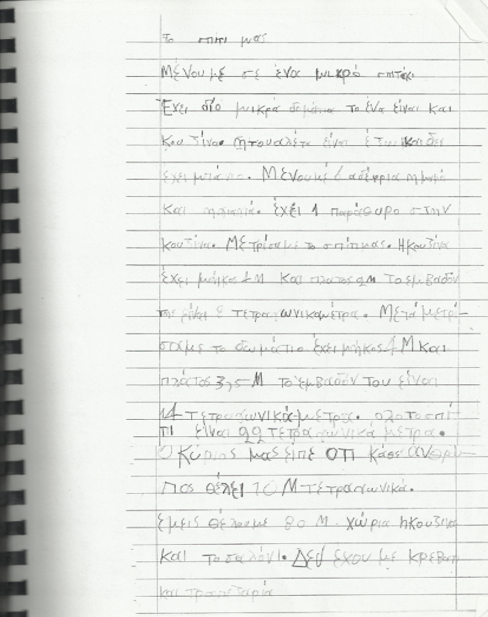 Το σπιτι μας
Μένουμε σε ένα μικρό σπιτάκι
Έχει δίο μικρά δομάτια το ένα είναι και
κουζίνα. Η τουαλέτα είναι έξω και δεί
έχει μπάνιο. Μένουμέ 6 αδέρφια η μαμά
και η γιαγιά. έχέι 1 παράθυρο στην
κουζίνα. Μετρίσαμε το σπίτι μας. Η κουζίνα
έχει μάκος 4 Μ και πλατος 2 Μ το εμβαδόν
της είναι 8 τετραγωνικα μέτρα. Μετά μετρί-
σαμε το δωμάτιο έχει μήκος 4 Μ και
πλάτος 3,5 Μ το έμβαδόν του είναι
14 τετραγωνικά μετρα. ολο το σπί-
τι είναι 22 τετραγωνικά μετρα.
Ο Κύριος μας είπε οτι κάθε ανθρω
πος θέλει 10 Μ τετραγωνικά.
Εμείς θέλουμε 80 Μ. χώρια η κουζίνα
και το σαλόνι. Δεν έχουμε κρεβατ
και τραπεζαρία